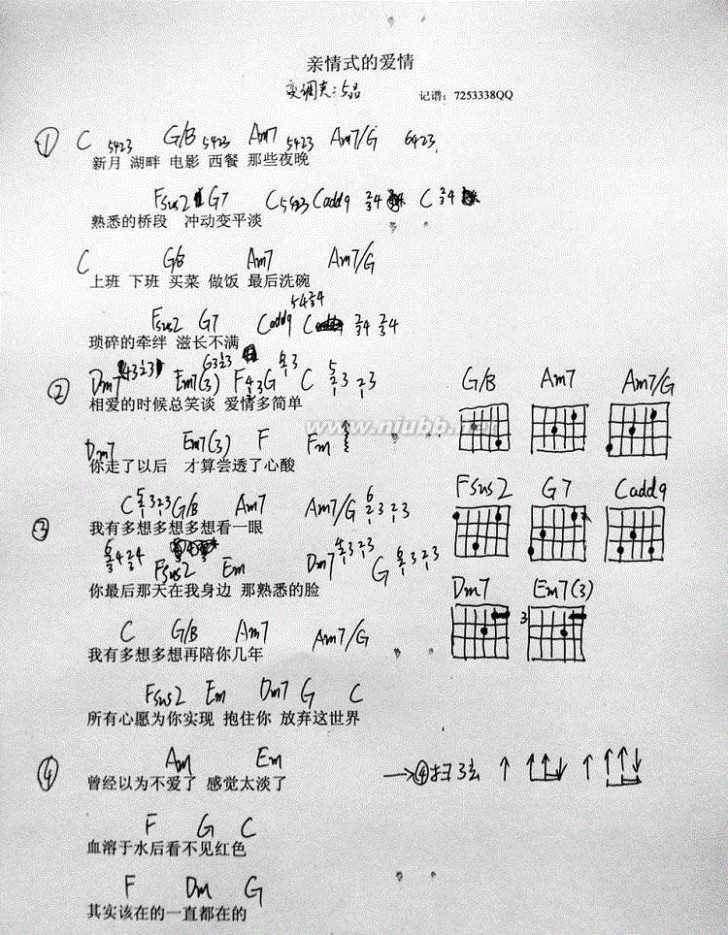 亲情式的爱情
变调夹：5品
记谱：7253338QQ
① C 5423 G/B 5423 Am7 5423 Am7/G 6423
新月 湖畔 电影 西餐 那些夜晚
Fsus2 G7 C 5423 Cadd9 C
熟悉的桥段 冲动变平淡
C G/B Am7 Am7/G
上班 下班 买菜 做饭 最后洗碗
Fsus2 G7 Cadd9 C
琐碎的牵绊 滋长不满
② Dm7 Em7(3) F G C
相爱的时候总笑谈 爱情多简单
www.niubb.net
Dm7 Em7(3) F Fm
你走了以后 才算尝透了心酸
③ C G/B Am7 Am7/G
我有多想多想多想看一眼
Fsus2 Em Dm7 G
你最后那天在我身边 那熟悉的脸
C G/B Am7 Am7/G
我有多想多想再陪你几年
Fsus2 Em Dm7 G C
所有心愿为你实现 抱住你 放弃这世界
G/B Am7 Am7/G
Fsus2 G7 Cadd9
Dm7 Em7(3)
3
④ Am Em
曾经以为不爱了 感觉太淡了
→④扫弦 ↑ ↑↑↓ ↑ ↑↑↓
F G C
血溶于水后看不见红色
F Dm G
其实该在的一直都在的